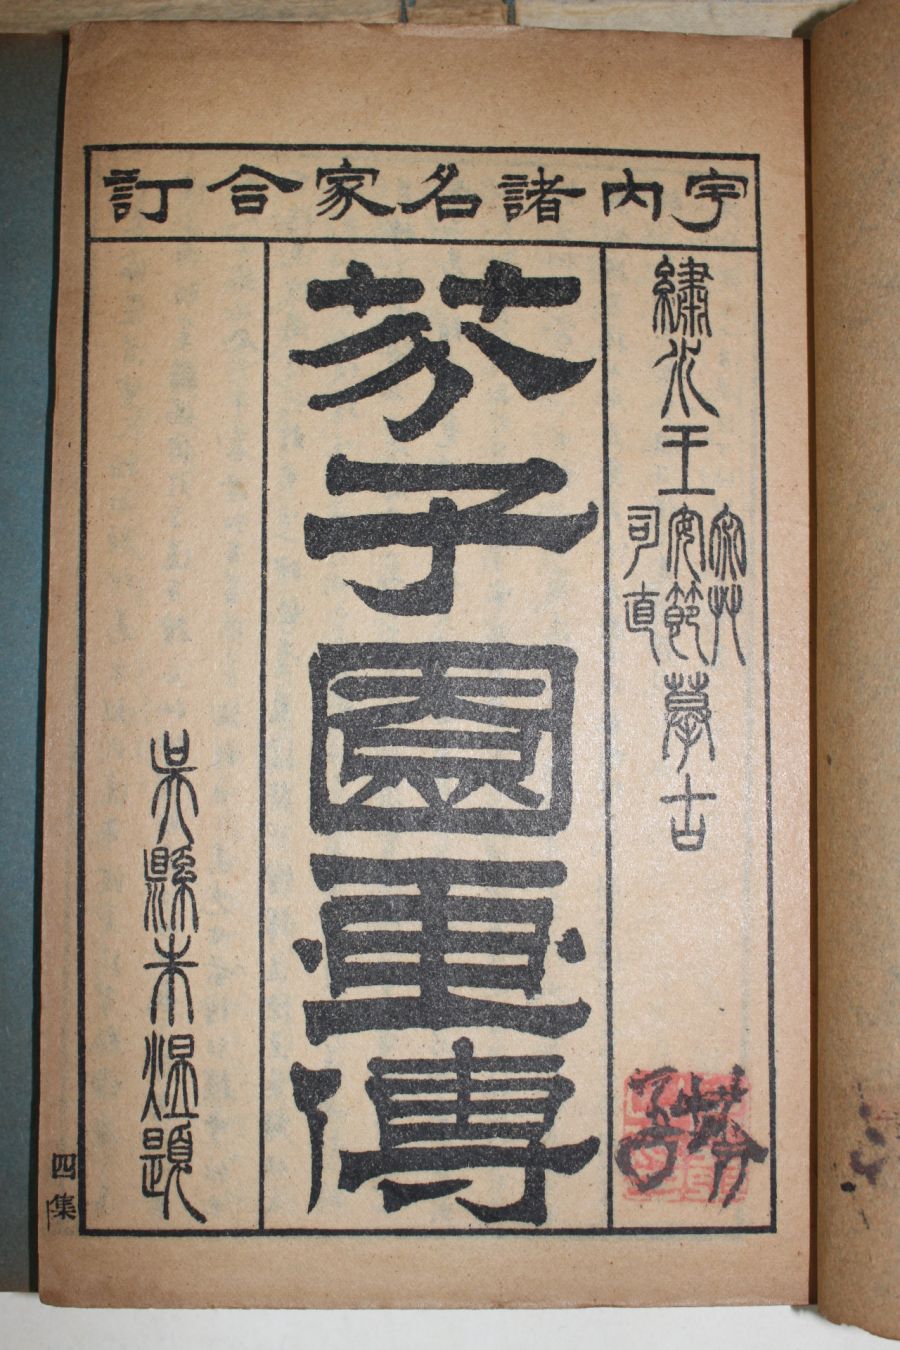 宇内諸名家合訂
繡水王
宓艸
安節
司直
摹古
芥子園畫傳
吳縣朱題
四集